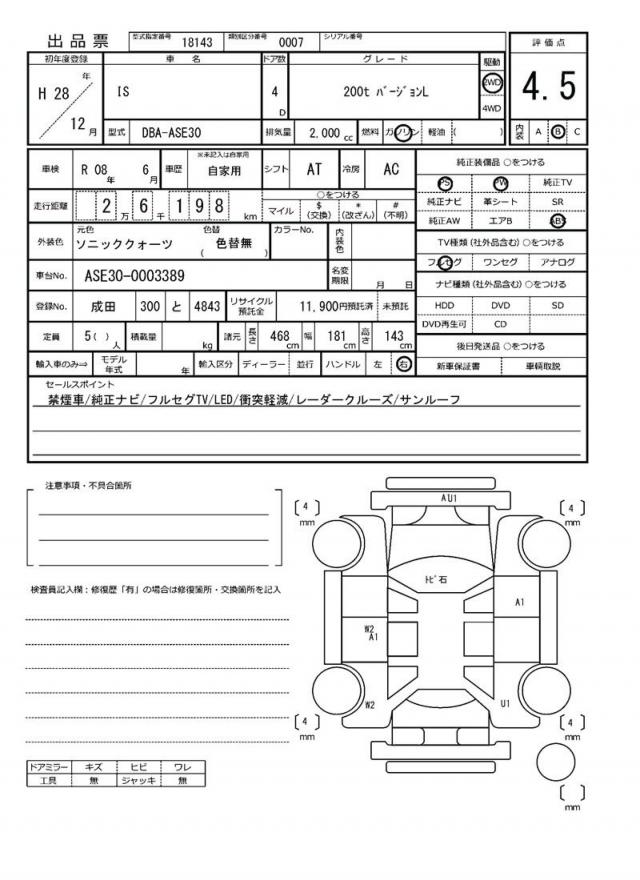 出品票 型式指定番号 18143 類別区分番号 0007 シリアル番号
初年度登録 車名 ドア数 グレード 駆動 評価点
H 28 年 12 月 IS 4 D 200t バージョンL 2WD 4WD 4.5
型式 DBA-ASE30 排気量 2,000 cc 燃料 ガソリン 軽油 ( ) 内装 A B C
車検 R 08 年 6 月 車歴 ※未記入は自家用 自家用 シフト AT 冷房 AC 純正装備品 ○をつける
PS PW 純正TV
走行距離 2 万 6 千 1 9 8 km ○をつける マイル $ (交換) * (改ざん) # (不明) 純正ナビ 革シート SR
純正AW エアB ABS
外装色 元色 ソニッククォーツ 色替 ( 色替無 ) カラーNo. 内装色 TV種類 (社外品含む) ○をつける
フルセグ ワンセグ アナログ
車台No. ASE30-0003389 名変期限 月 日 ナビ種類 (社外品含む) ○をつける
登録No. 成田 300 と 4843 リサイクル預託金 11,900円預託済 未預託 HDD DVD SD
DVD再生可 CD
定員 5 ( ) 人 積載量 kg 諸元 長さ 468 cm 幅 181 cm 高さ 143 cm 後日発送品 ○をつける
輸入車のみ⇒ モデル年式 年 輸入区分 ディーラー 並行 ハンドル 左 右 新車保証書 車輌取説
セールスポイント
禁煙車/純正ナビ/フルセグTV/LED/衝突軽減/レーダークルーズ/サンルーフ
注意事項・不具合箇所
[ 4 ] mm AU1 [ 4 ] mm
ﾄﾋﾞ石
検査員記入欄：修復歴「有」の場合は修復箇所・交換箇所を記入
A1
W2
A1
W2 U1
[ 4 ] mm [ 4 ] mm
ドアミラー キズ ヒビ ワレ
工具 無 ジャッキ 無
[ ] mm